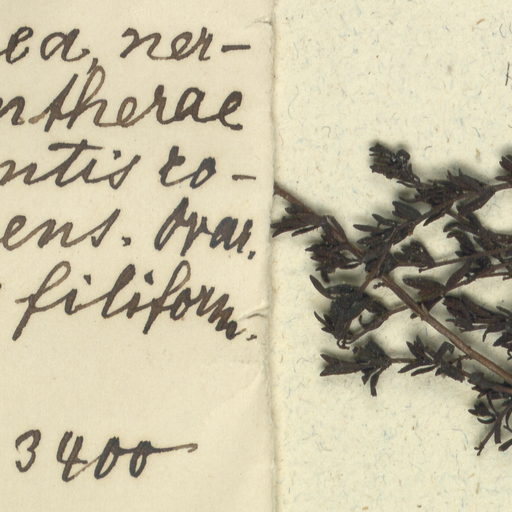 ea, ner-
ntherae
ntis ro-
ens. Ovar.
filiform.
3400